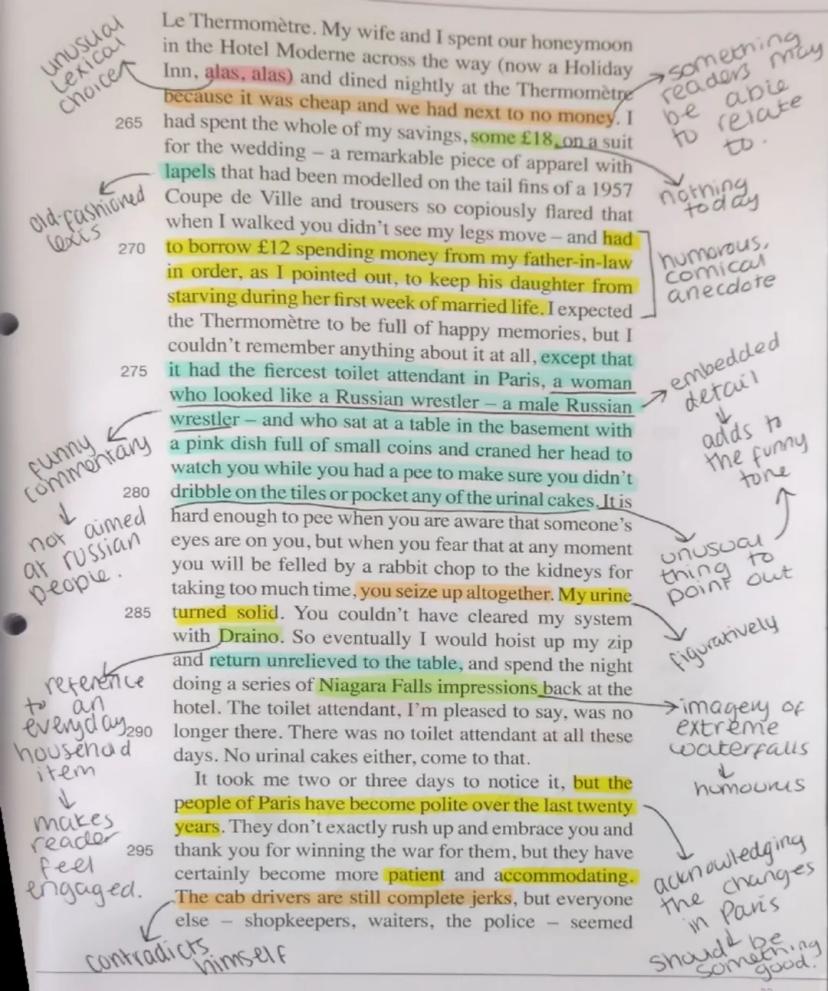 Le Thermomètre. My wife and I spent our honeymoon
in the Hotel Moderne across the way (now a Holiday
Inn, alas, alas) and dined nightly at the Thermomètre
because it was cheap and we had next to no money. I
265 had spent the whole of my savings, some £18, on a suit
for the wedding – a remarkable piece of apparel with
lapels that had been modelled on the tail fins of a 1957
Coupe de Ville and trousers so copiously flared that
when I walked you didn't see my legs move – and had
270 to borrow £12 spending money from my father-in-law
in order, as I pointed out, to keep his daughter from
starving during her first week of married life. I expected
the Thermomètre to be full of happy memories, but I
couldn't remember anything about it at all, except that
275 it had the fiercest toilet attendant in Paris, a woman
who looked like a Russian wrestler – a male Russian
wrestler – and who sat at a table in the basement with
a pink dish full of small coins and craned her head to
watch you while you had a pee to make sure you didn't
280 dribble on the tiles or pocket any of the urinal cakes. It is
hard enough to pee when you are aware that someone's
eyes are on you, but when you fear that at any moment
you will be felled by a rabbit chop to the kidneys for
taking too much time, you seize up altogether. My urine
285 turned solid. You couldn't have cleared my system
with Draino. So eventually I would hoist up my zip
and return unrelieved to the table, and spend the night
doing a series of Niagara Falls impressions back at the
hotel. The toilet attendant, I'm pleased to say, was no
290 longer there. There was no toilet attendant at all these
days. No urinal cakes either, come to that.
It took me two or three days to notice it, but the
people of Paris have become polite over the last twenty
years. They don't exactly rush up and embrace you and
295 thank you for winning the war for them, but they have
certainly become more patient and accommodating.
The cab drivers are still complete jerks, but everyone
else – shopkeepers, waiters, the police – seemed
unusual
lexical
choice
old-fashioned
lexis
funny
commentary
not aimed
at russian
people.
reference
to an
everyday
househod
item
makes
reader
feel
engaged.
contradicts
himself
something
readers may
be able
to relate
to.
nothing
today
humorous,
comical
anecdote
embedded
detail
adds to
the funny
tone
unusual
thing to
point out
figuratively
imagery of
extreme
waterfalls
humourus
acknowledging
the changes
in Paris
should be
something
good.